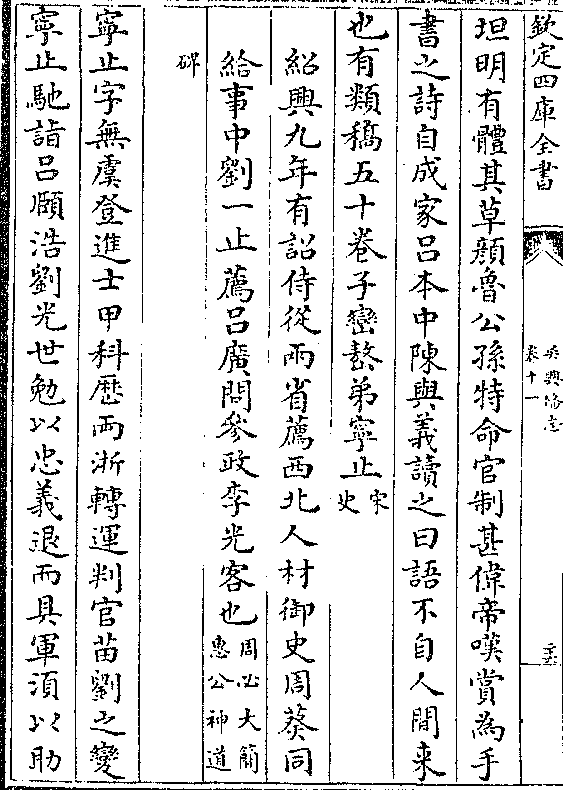 欽定四庫全書
吳興備志
卷十一
坦明有體其草顔魯公孫特命官制甚偉帝嘆賞為手
書之詩自成家吕本中陳與義讀之曰語不自人間来
也有類稿五十卷子巒嶅弟寧止宋史
紹興九年有詔侍從兩省薦西北人材御史周葵同
給事中劉一止薦吕廣問參政李光客也周必大簡惠公神道
碑
寧止字無虞登進士甲科歴兩浙轉運判官苗劉之變
寧止馳詣吕頤浩劉光世勉以忠義退而具軍須以助